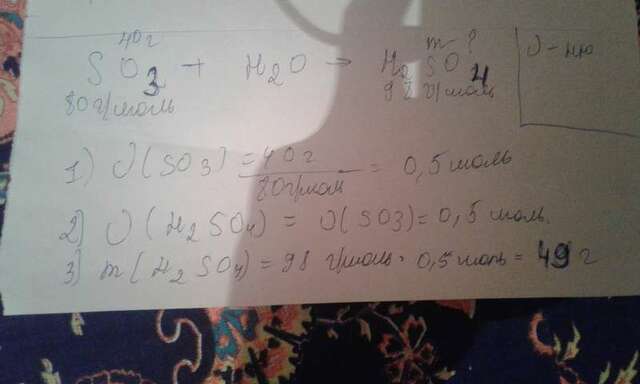 40г m-?
SO3 + H2O → H2SO4
80г/моль 98 г/моль
υ - ню
1) υ(SO3) = 40г / 80г/моль = 0,5 моль
2) υ(H2SO4) = υ(SO3) = 0,5 моль.
3) m(H2SO4) = 98 г/моль · 0,5 моль = 49 г